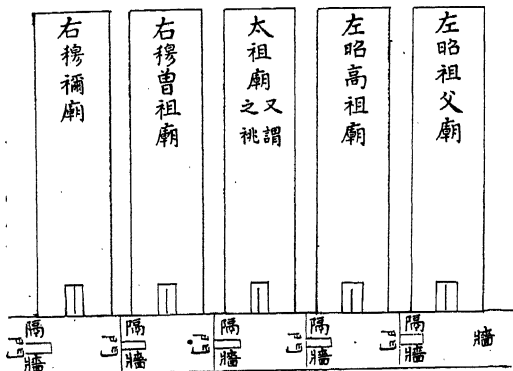 左昭祖父廟
左昭高祖廟
太祖廟
又謂
之祧
右穆曾祖廟
右穆禰廟
牆
隔牆
隔牆
隔牆
隔牆
隔牆